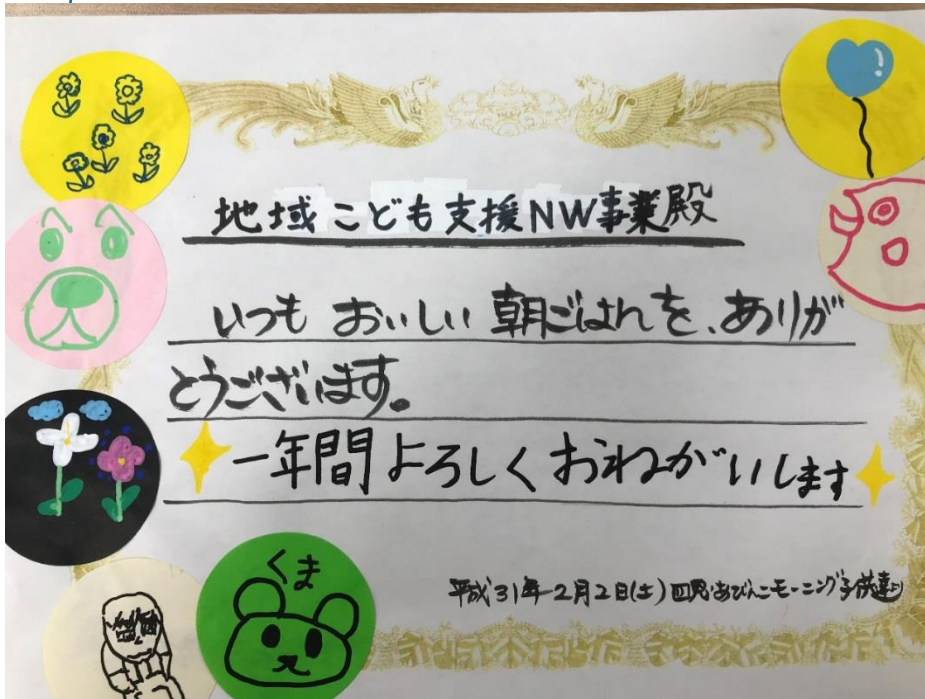 地域こども支援NW事業殿
いつも おいしい 朝ごはんを、ありが
とうございます。
一年間よろしくおねがいします
くま
平成31年2月2日(土) あびんこモーニング子供達より